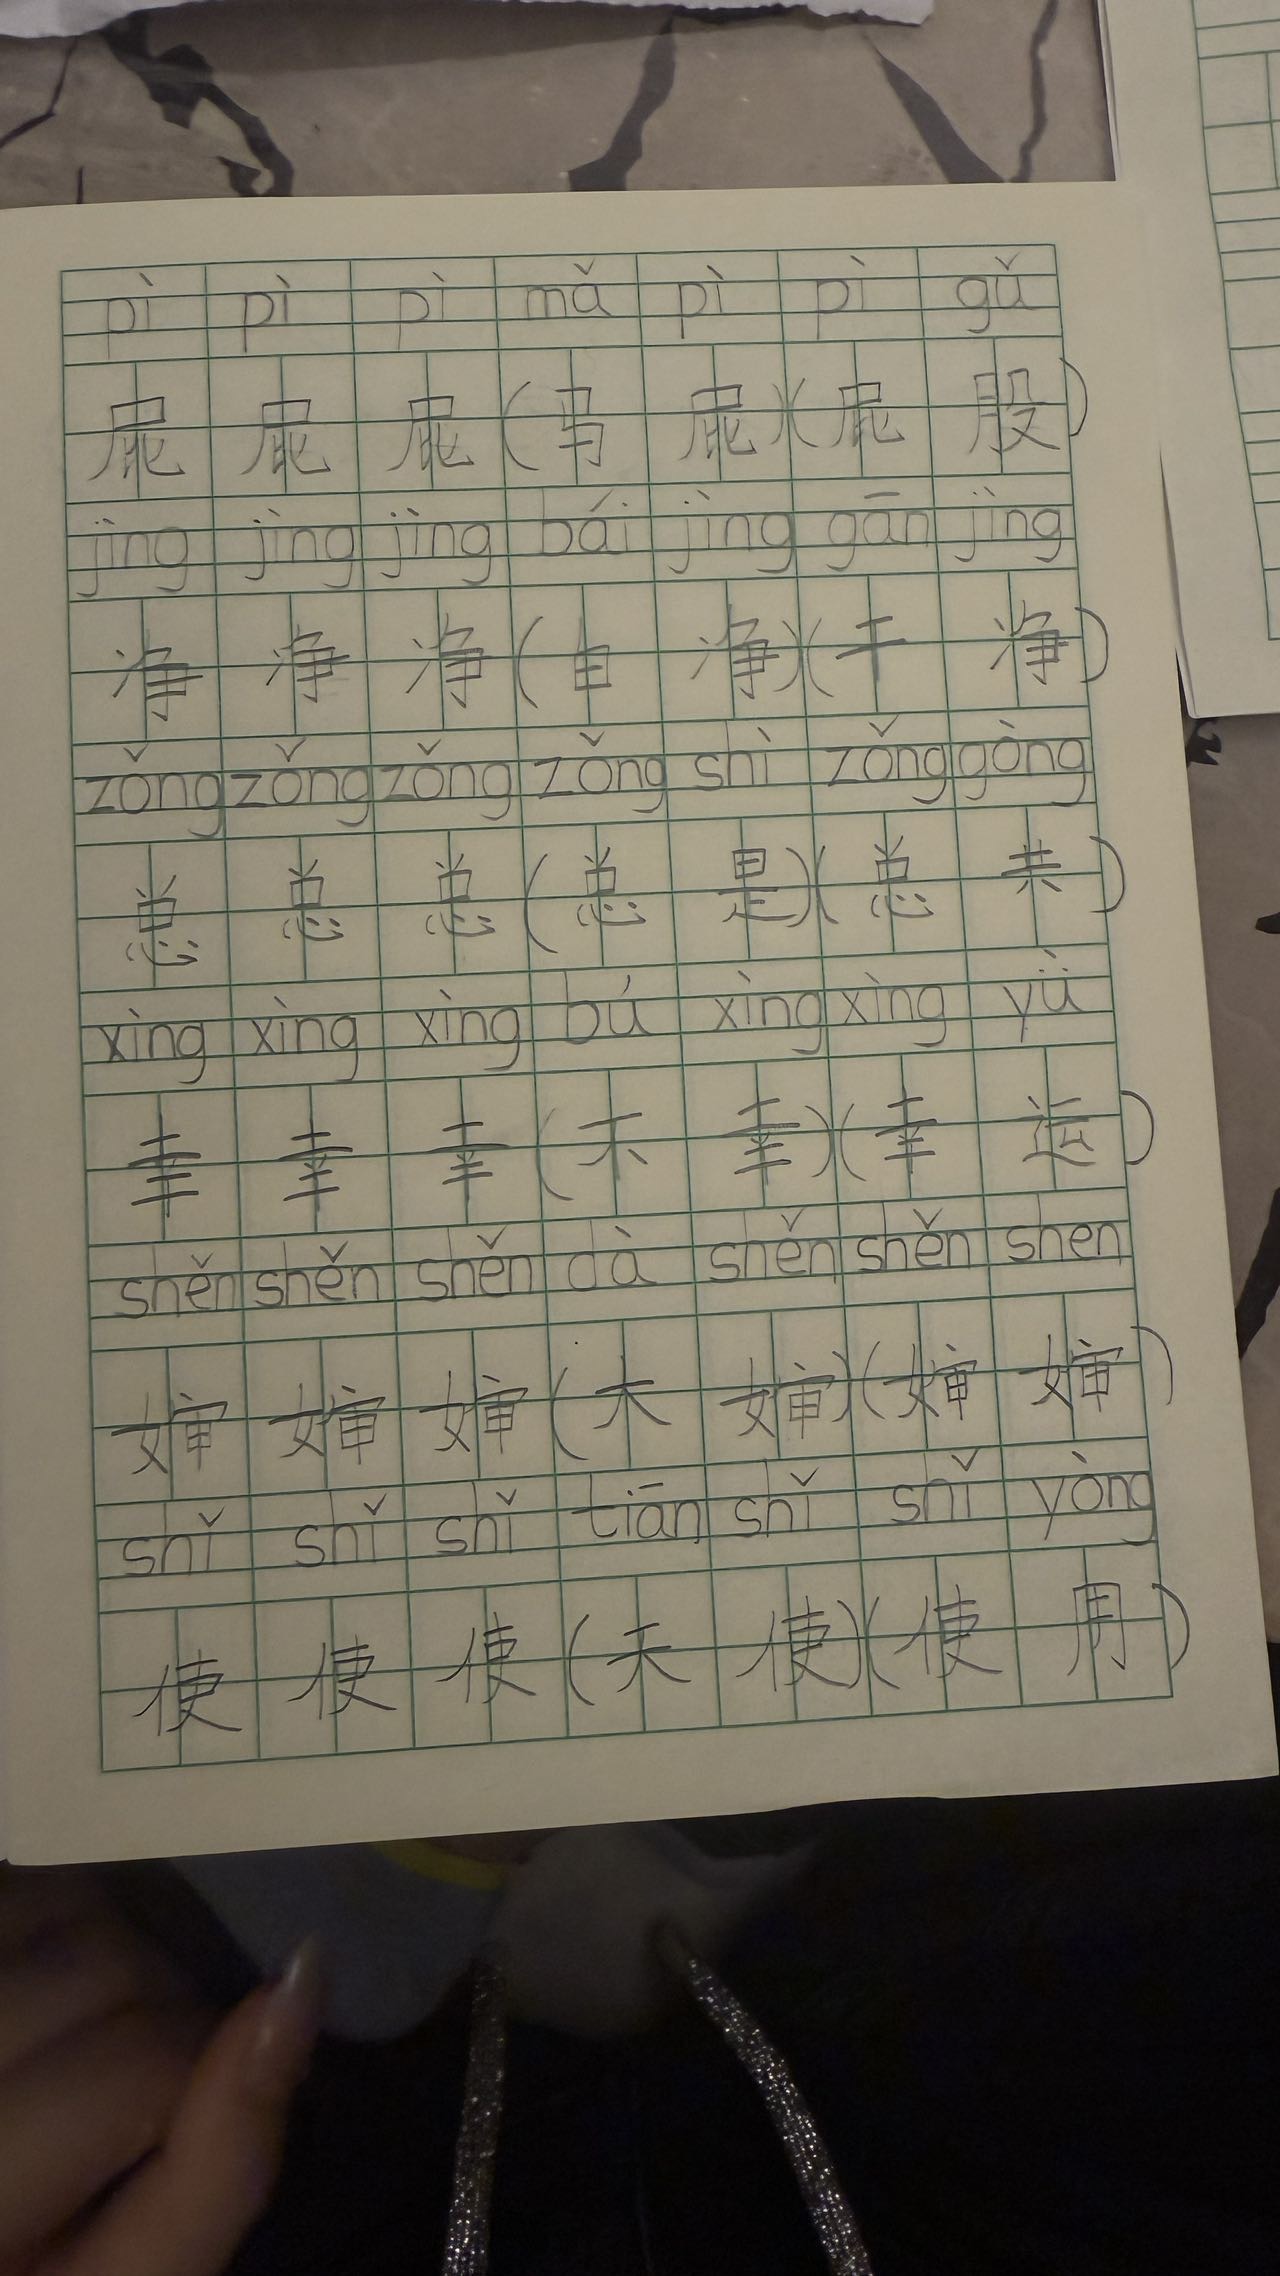 pì pì pì mǎ pì pì gǔ
屁 屁 屁 (马 屁)(屁 股)
jìng jìng jìng bái jìng gān jìng
净 净 净 (白 净)(干 净)
zǒng zǒng zǒng zǒng shì zǒng gòng
总 总 总 (总 是)(总 共)
xìng xìng xìng bú xìng xìng yù
幸 幸 幸 (不 幸)(幸 运)
shěn shěn shěn dà shěn shěn shen
婶 婶 婶 (大 婶)(婶 婶)
shǐ shǐ shǐ tiān shǐ shǐ yòng
使 使 使 (天 使)(使 用)